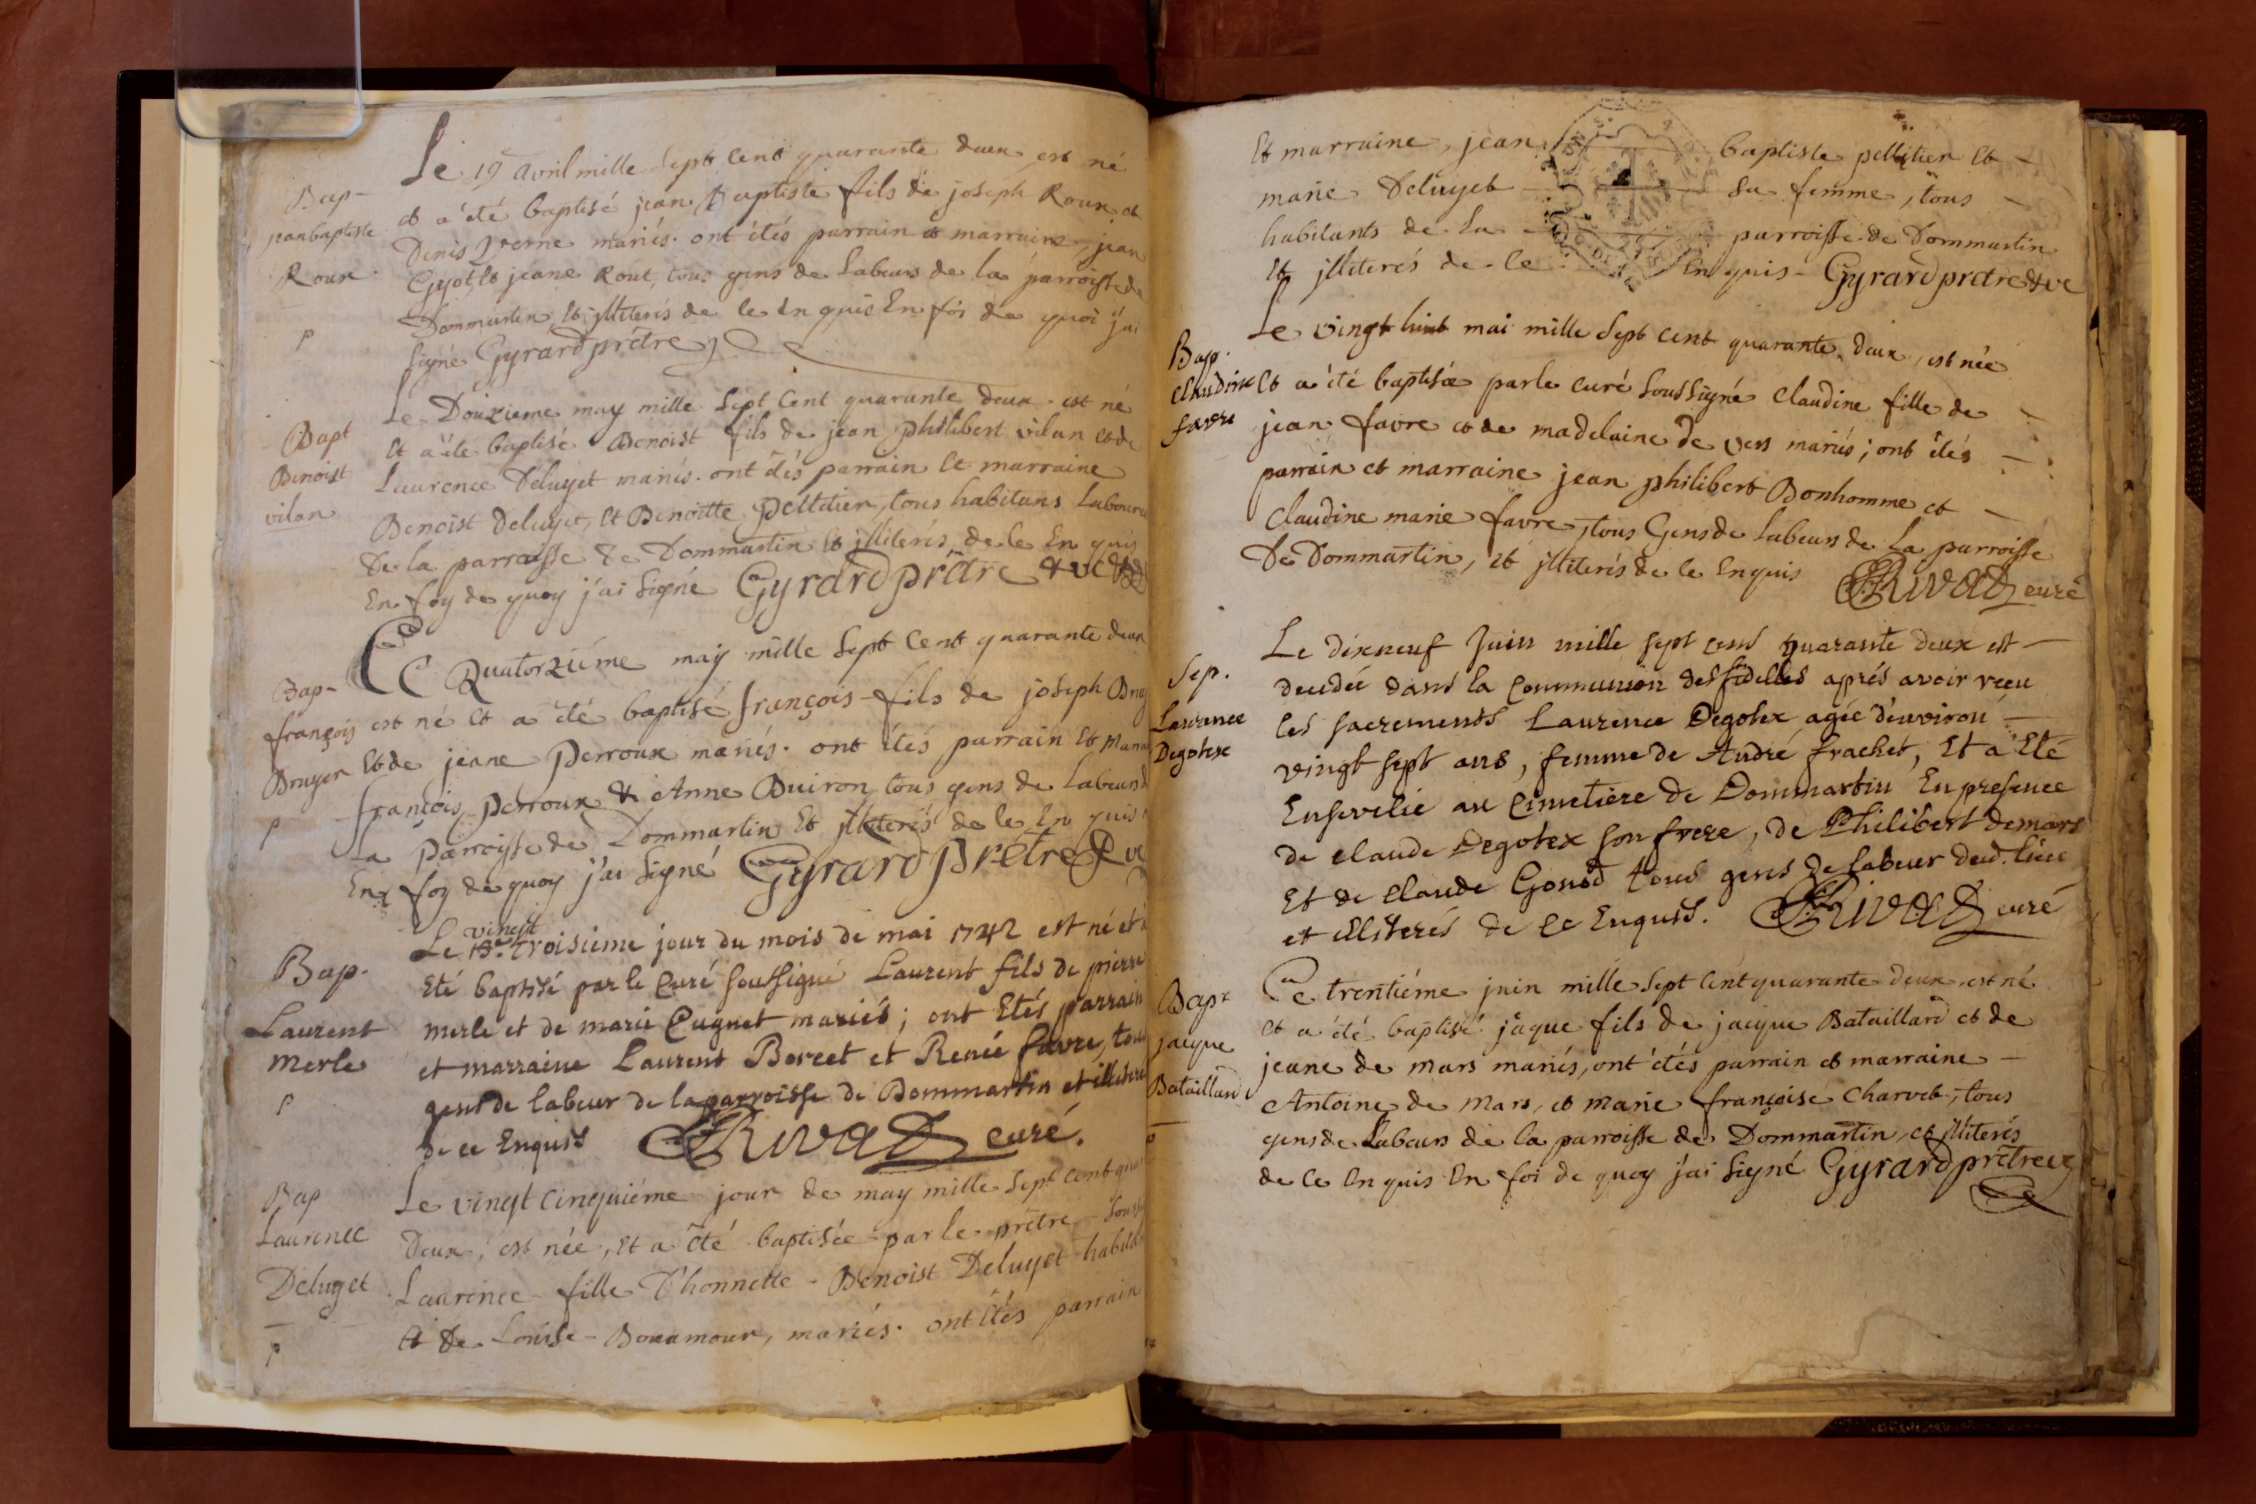 Bap-
jean baptiste
Roux
p
Le 19e avril mille sept cent quarante deux est né
et a été baptisé jean Baptiste fils de joseph Roux et
Denis Verne mariés. ont étés parrain et marraine jean
Gyot et jeane Rout, tous gens de Labeurs de la parroisse de
Dommartin et jlliterés de ce Enquis En foi de quoi j'ai
signé Gyrard prêtre
Bapt
Benoist
vilan
Le Douzieme may mille sept Cent quarante deux est né
Et a été baptisé Benoist fils de jean philibert vilan et de
Laurence Deluyet mariés. ont étés parrain et marraine
Benoist Deluyet, et Benoitte Pelletier, tous habitans Laboureu
De la parroisse de Dommartin et jlliterés de ce Enquis
En foy de quoy j'ai signé Gyrard prêtre & vic
Bap-
françois
Bruyer
p
Ce Quatorziéme may mille Sept Cent quarante deux
est né et a été baptisé françois fils de joseph Bruy
et de jeane Perroux mariés. ont étés parrain et Marra
françois Perroux & Anne Buiron tous gens de Labeurs d
La Parroisse de Dommartin Et jlliterés de ce Enquis
En foy de quoy j'ai signé Gyrard Prêtre & vic
Bap.
Laurent
Merle
p
vingt
Le troisieme jour du mois de mai 1742 est né et a
Eté baptisé par le Curé soussigné Laurent fils de pierre
merle et de marie Cugnet mariés; ont Etés parrain
et marraine Laurent Borcet et Renée favre, tous
gens de labeur de la parroisse de Dommartin et illiteré
de ce Enquis Rivat curé.
Bap
Laurence
Deluyet
p
Le vingt cinquiéme jour de may mille sept cent qua
Deux, est née, et a été baptisée par le prêtre sous
Laurence fille D'honnette Benoist Deluyet habita
et de Louise Bonamour, mariés. ont étés parrain
Et marraine, jean baptiste pelletier et
marie Deluyet sa femme, tous
habitants de la parroisse de Dommartin
et jlliterés de ce Enquis Gyrard prêtre & vic
Bap.
Claudine
favre
Le vingt huit mai mille Sept cent quarante deux, est née
et a été baptisée par le curé soussigné claudine fille de
jean favre et de madelaine de vers mariés; ont étés
parrain et marraine jean philibert Bonhomme et
Claudine marie favre, tous Gens de Labeurs de La parroisse
De Dommartin, et jlliterés de ce Enquis Rivat curé
Sep.
Laurence
Degotex
Le dixneuf Juin mille sept cens quarante deux est
decedée dans la Communion des fidelles aprés avoir reçu
les sacrements Laurence Degotex agée d'environ
vingt sept ans, femme de André frachet, Et a Eté
Ensevelie au Cimetiere de Dommartin En presence
de claude Degotex son frere, de Philibert demars
Et de claude Gonod tous gens de labeur dud. lieu
et illiterés de ce Enquis. Rivat curé
Bapt
jacque
Bataillard
Ce trentiéme juin mille sept cent quarante deux est né
et a été baptisé jaque fils de jacque Bataillard et de
jeane de mars mariés, ont étés parrain et marraine
Antoine de Mars, et marie françoise Charvet, tous
gens de Labeurs de la parroisse de Dommartin, et jlliterés
de ce Enquis En foi de quoy j'ai signé Gyrard prêtre vic